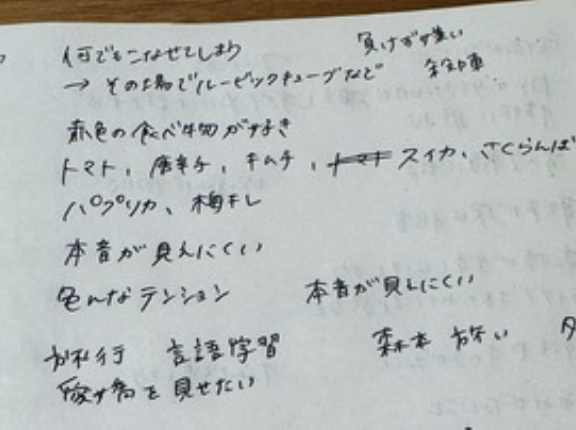 何でもこなせてしまう
負けず嫌い
→ その場でルービックキューブなど
赤色の食べ物が好き
トマト、唐辛子、キムチ、トマト スイカ、さくらんぼ
パプリカ、梅干し
本音が見えにくい
色んなテンション 本音が見えにくい
旅行 言語学習
を見せたい